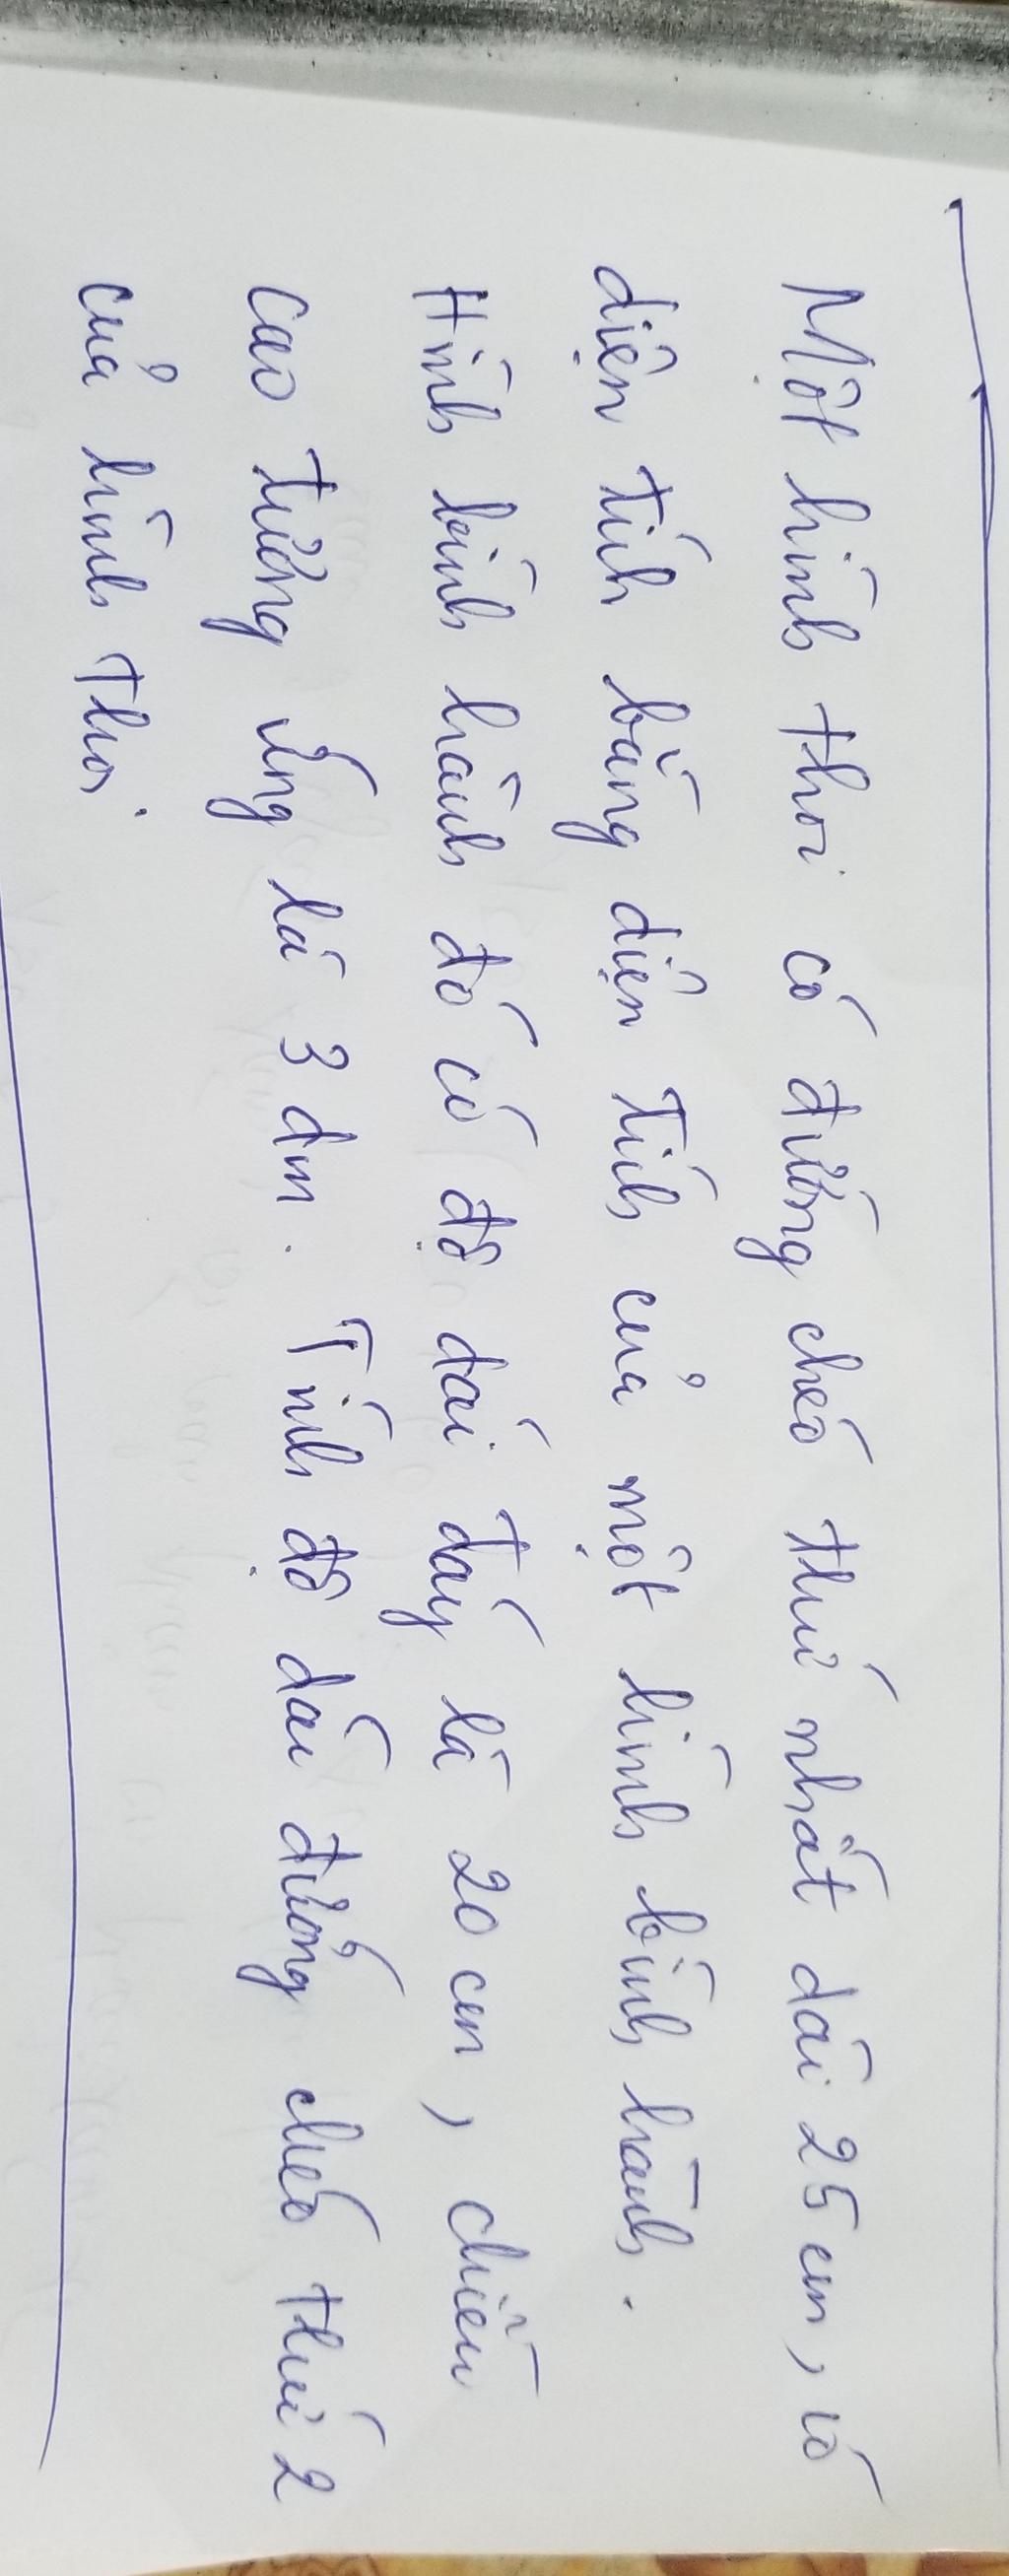 Một hình thoi có đường chéo thứ nhất dài 25 cm, có
diện tích bằng diện tích của một hình bình hành.
Hình bình hành đó có độ dài đáy là 20 cm, chiều
cao tương ứng là 3 dm. Tính độ dài đường chéo thứ 2
của hình thoi.